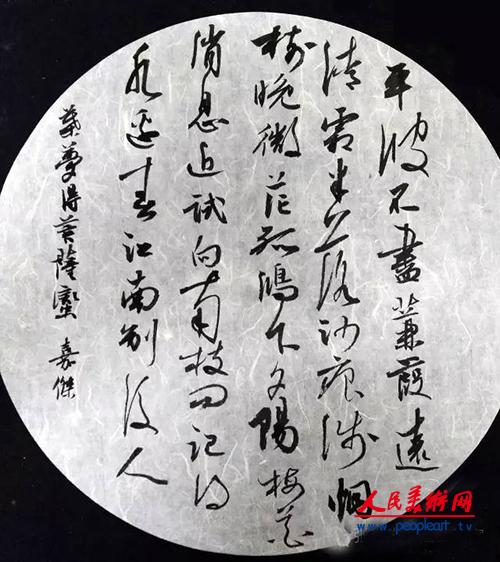 平波不盡蒹葭遠
清霜半落沙痕淺烟
樹晚微茫孤鴻下夕陽梅花
消息近試向南枝问記得
水邊春江南别後人
葉夢得菩薩蠻 嘉傑
人民美术网
www.peopleart.tv